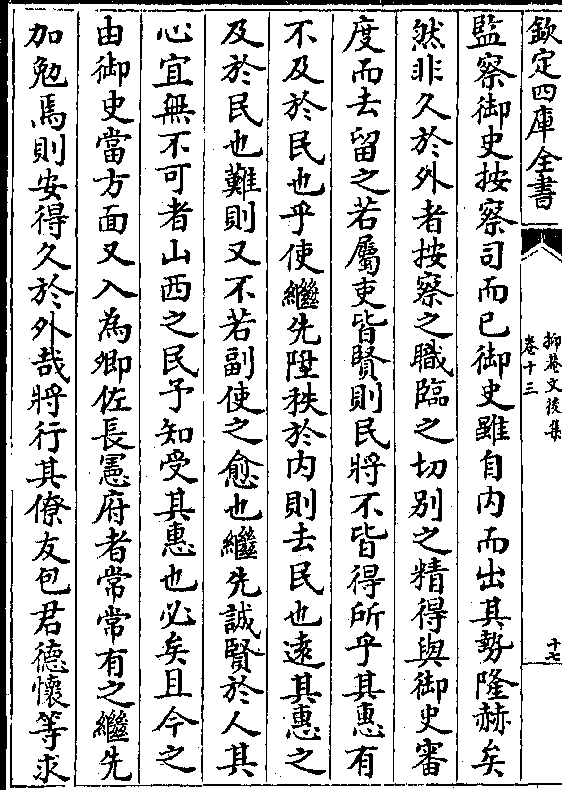 欽定四庫全書
抑菴文後集
卷十三
十七
監察御史按察司而已御史雖自内而出其勢隆赫矣
然非久於外者按察之職臨之切別之精得與御史審
度而去留之若屬吏皆賢則民將不皆得所乎其惠有
不及於民也乎使繼先陞秩於内則去民也逺其惠之
及於民也難則又不若副使之愈也繼先誠賢於人其
心宜無不可者山西之民予知受其惠也必矣且今之
由御史當方面又入為卿佐長憲府者常常有之繼先
加勉焉則安得久於外哉將行其僚友包君德懷等求